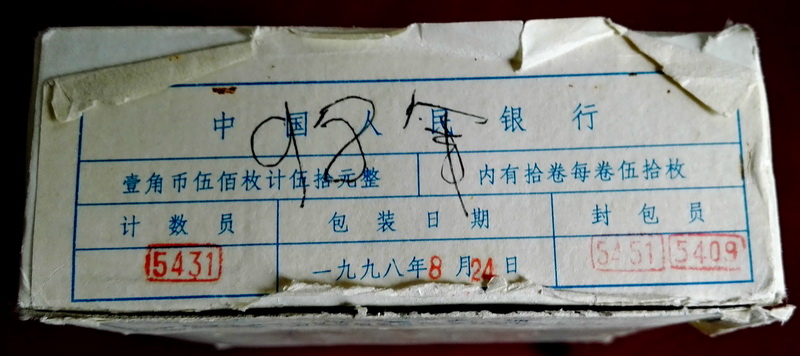 中国人民银行
98年
壹角币伍佰枚计伍拾元整 内有拾卷每卷伍拾枚
计数员 包装日期 封包员
5431 一九九八年8月24日 5451 5409